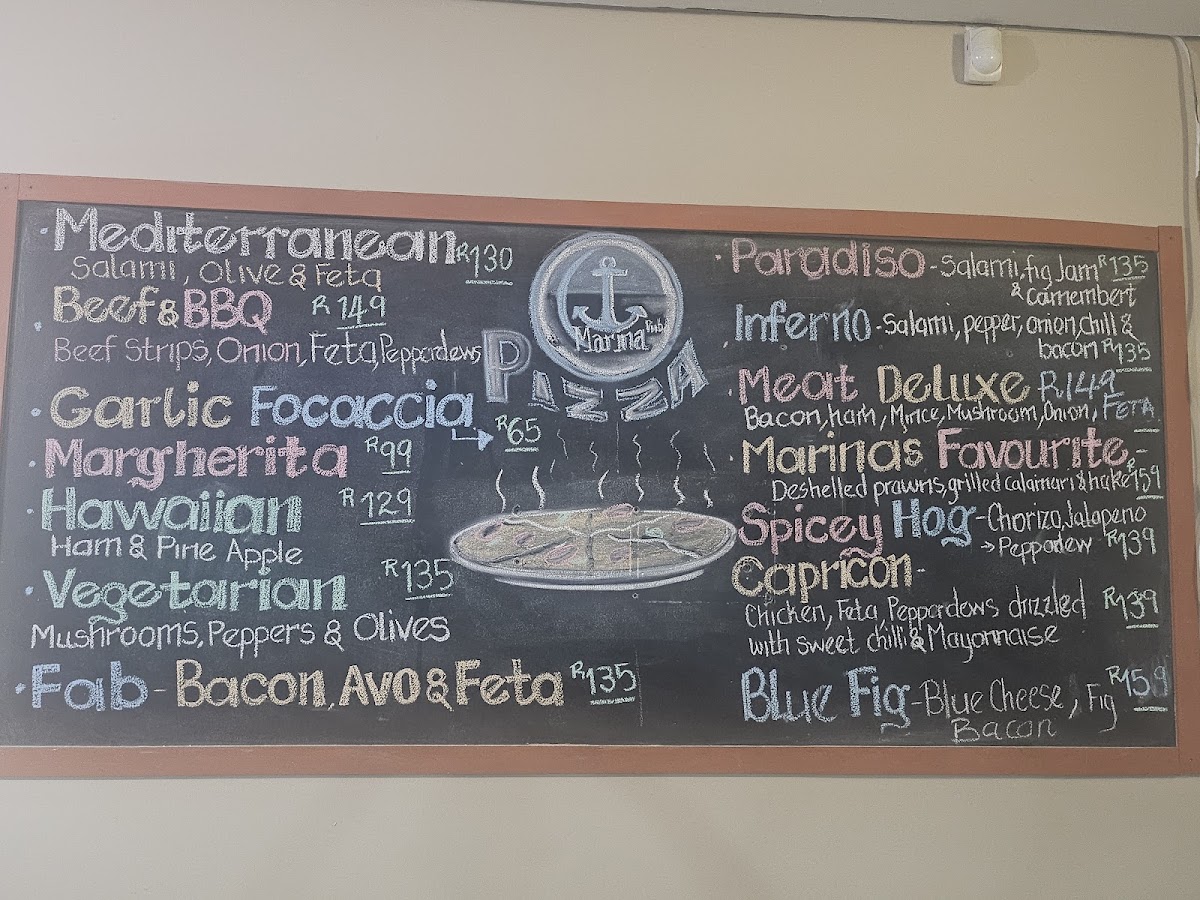 Mediterranean R130
Salami, Olive & Feta
Beef & BBQ R149
Beef Strips, Onion, Feta, Peppardews
Garlic Focaccia R65
Margherita R99
Hawaiian R129
Ham & Pine Apple
Vegetarian R135
Mushrooms, Peppers & Olives
Fab - Bacon, Avo & Feta R135
Marina Pub
PIZZA
Paradiso - Salami, fig Jam R135
& Camembert
Inferno - Salami, pepper, onion, chill &
bacon R135
Meat Deluxe R149
Bacon, ham, Mince, Mushroom, Onion, Feta
Marinas Favourite -
Deshelled prawns, grilled calamari & hake R159
Spicey Hog - Chorizo, Jalapeno
→ Peppadew R139
Capricon -
Chicken, Feta, Peppardews drizzled R139
with sweet chilli & Mayonnaise
Blue Fig - Blue Cheese, Fig R159
Bacon